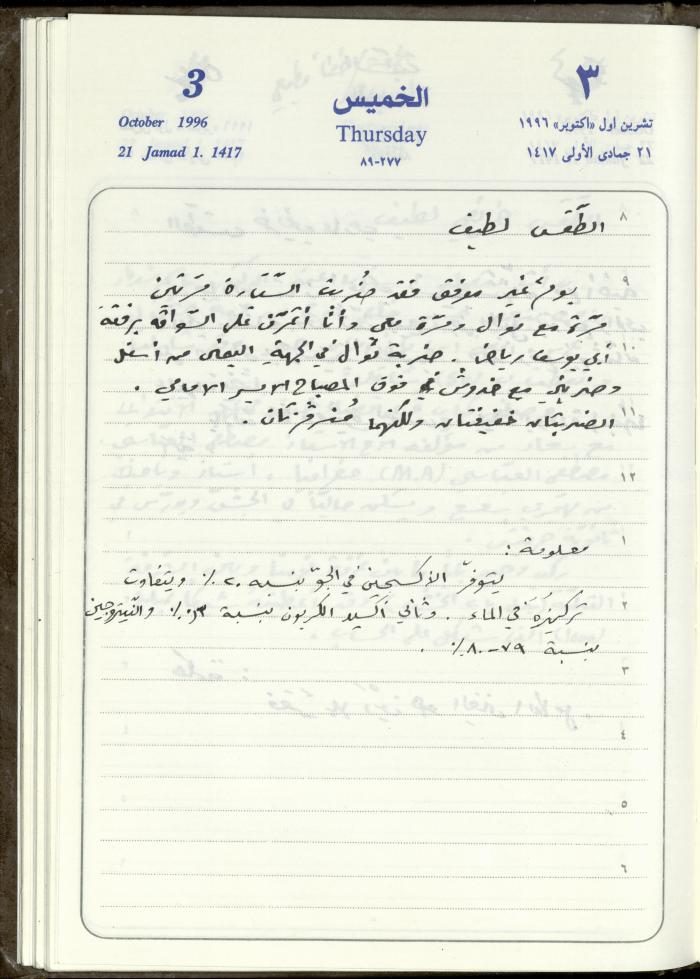 3
October 1996
21 Jamad 1. 1417
الخميس
Thursday
٨٩-٢٧٧
٣
تشرين اول «اكتوبر» ١٩٩٦
٢١ جمادى الأولى ١٤١٧
٨
الطّقس لطيف
٩
يومٌ غير موفق فقد ضُربت السيّارة مرّتين
مرّة مع نوال ومرّة معي وأنا أتمرّن على السّواقة برفقة
١٠
أبي يوسف رياض. ضربة نوال في الجهة اليمنى من أسفل
وضربتي مع خدوش فوق المصباح الايسر الامامي.
١١
الضربتان خفيفتان ولكنهما مُنرفزتان.
١٢
١
معلومة:
يتوفّر الأكسجين في الجوّ بنسبه ٢٠٪ ويتفاوت
٢
تركيزه في الماء. وثاني أكسيد الكربون بنسبة ٠,٠٣٪ والنّيتروجين
بنسبة ٧٩-٨٠٪.
٣
٤
٥
٦